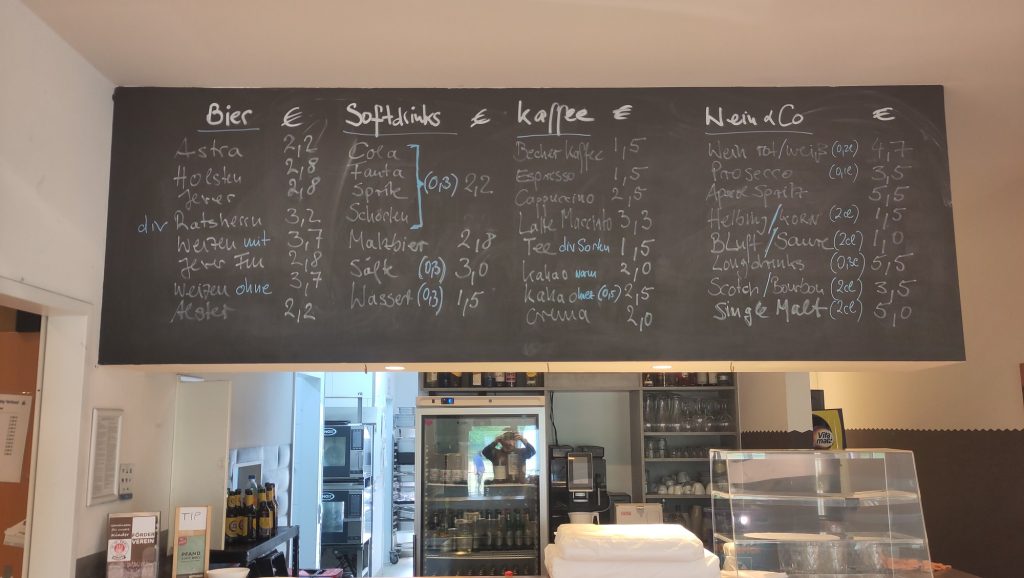 Bier €
Astra 2,2
Holsten 2,8
Jever 2,8
div Ratsherrn 3,2
Weizen mit 3,7
Jever Fun 2,8
Weizen ohne 3,7
Alster 2,2
Softdrinks €
Cola
Fanta
Sprite
Schorlen
(0,3) 2,2
Malzbier 2,8
Säfte (0,3) 3,0
Wasser (0,3) 1,5
Kaffee €
Becher Kaffee 1,5
Espresso 1,5
Cappuccino 2,5
Latte Macciato 3,3
Tee div Sorten 1,5
Kakao warm 2,0
Kakao kalt (0,5) 2,5
Crema 2,0
Wein & Co €
Wein rot/weiß (0,2l) 4,7
Prosecco (0,1l) 3,5
Aperol Spritz 5,5
Helbing/Korn (2cl) 1,5
Bluff/Saure (2cl) 1,0
Longdrinks (0,3l) 5,5
Scotch/Bourbon (2cl) 3,5
Single Malt (2cl) 5,0
Vita
malz
TIP
PFAND
FÖRDER
VEREIN